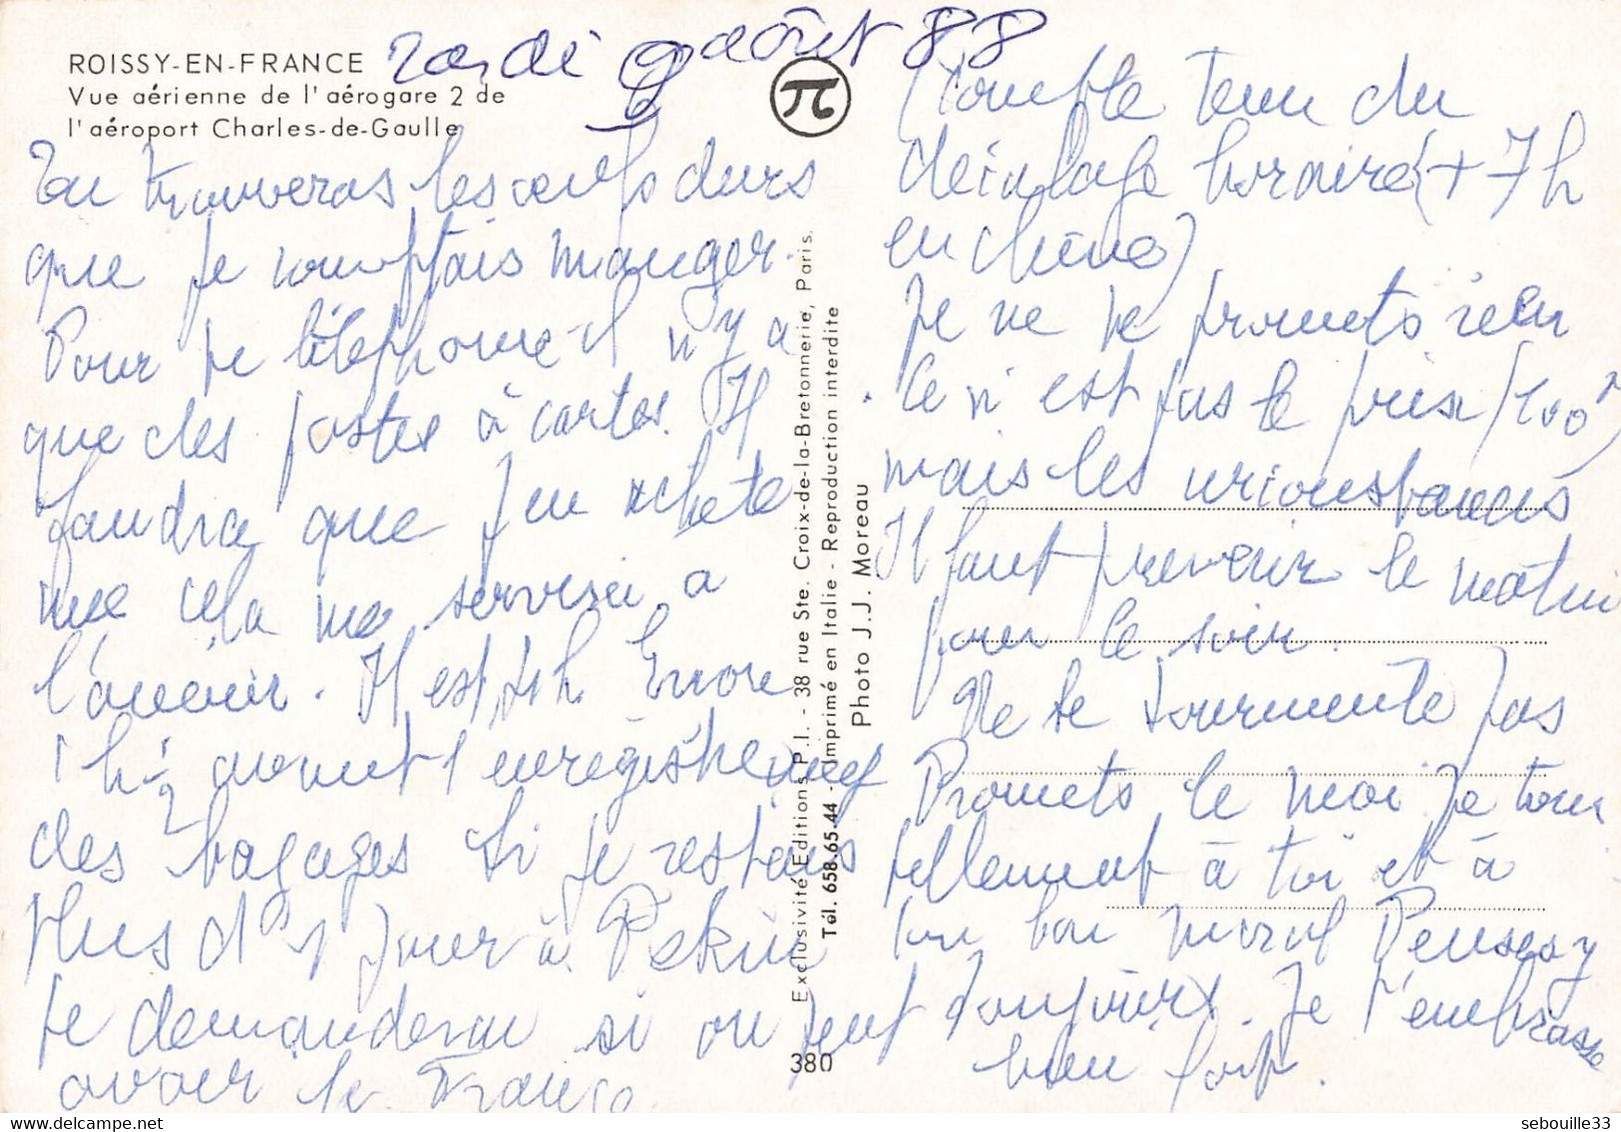 ROISSY-EN-FRANCE
Vue aérienne de l'aérogare 2 de
l'aéroport Charles-de-Gaulle
mardi 9 août 88
Tu trouveras les œufs durs
que je comptais manger.
Pour te téléphoner il n'y a
que des postes à cartes. Il
faudra que j'en achète
une cela me servira à
l'avenir. Il est 7h. Encore
1h ½ avant l'enregistrement
des bagages Si je restais
plus d'1 jour à Pékin
je demanderai si on peut
avoir la France
Exclusivité Editions P.I. - 38 rue Ste. Croix-de-la-Bretonnerie, Paris.
Tél. 658.65.44 - Imprimé en Italie - Reproduction interdite
Photo J.J. Moreau
380
π
(compte tenu du
décalage horaire (+ 7h
en Chine)
Je ne te promets rien
Ce n'est pas le prix (100F)
mais les circonstances
Il faut prévenir le matin
pour le soir.
Ne te tourmente pas
Promets le moi. Je tiens
tellement à toi et à
ton bon moral Penses-y
toujours. Je t'embrasse
bien fort.
www.delcampe.net
sebouille33